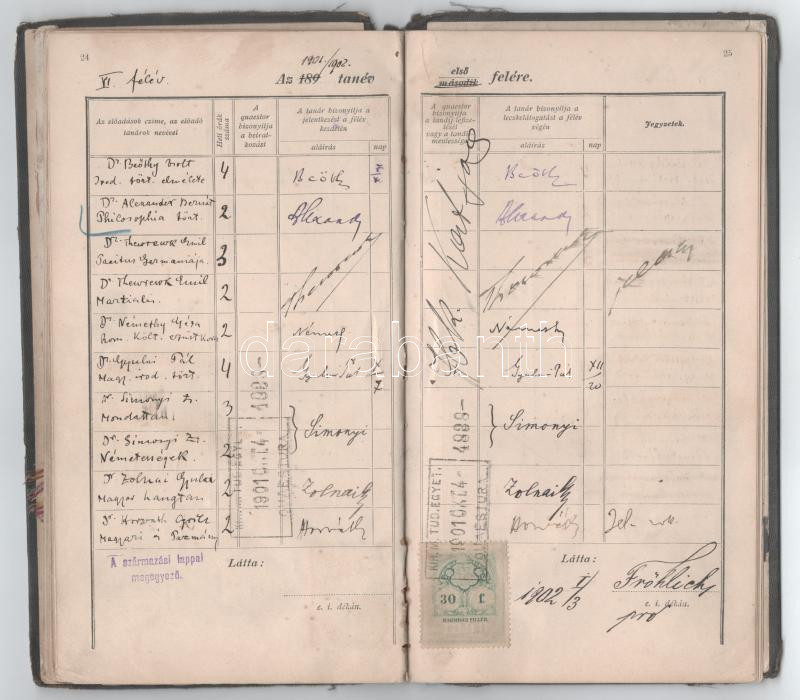 24
VI. félév.
1901/1902.
Az 189 tanév
Az előadások czíme, az előadó tanárok nevével
Heti órák száma
A quaestor bizonyítja a beiratkozást
A tanár bizonyítja a jelentkezést a félév kezdetén
aláírás
nap
Dr. Beöthy Zsolt
Irod. tört. elmélete
4
Beöthy
Dr. Alexander Bernát
Philosophia tört.
2
Alexander
Dr. Thewrewk Emil
Tacitus Germaniája
3
Dr. Thewrewk Emil
Martialis
2
Thewrewk
Dr. Némethy Géza
Rom. költ. ezüst kora
2
Némethy
Dr. Gyulai Pál
Magy. irod. tört.
4
Gyulai Pál
X/7
Dr. Simonyi Zs.
Mondattan
3
Dr. Simonyi Zs.
Németességek
2
Simonyi
Dr. Zolnai Gyula
Magyar hangtan
2
Zolnai Gy
Dr. Horváth Cyrill
2
Horváth
A származási lappal
megegyező.
Látta:
e. i. dékán.
25
első
második felére.
A quaestor bizonyítja a tandíj lefizetését vagy a tandíjmentességet
A tanár bizonyítja a leczkelátogatást a félév végén
aláírás
nap
Jegyzetek.
Beöthy
Alexander
Thewrewk
Némethy
Gyulai Pál
XII/20
Simonyi
Zolnai Gy
Horváth
TUD. EGYET.
1901 OKT. 4 - 4888 -
QUAESTURA
30 f.
HARMINCZ FILLÉR
Látta:
1902 I/3
Fröhlich
pro
e. i. dékán.
darabanth